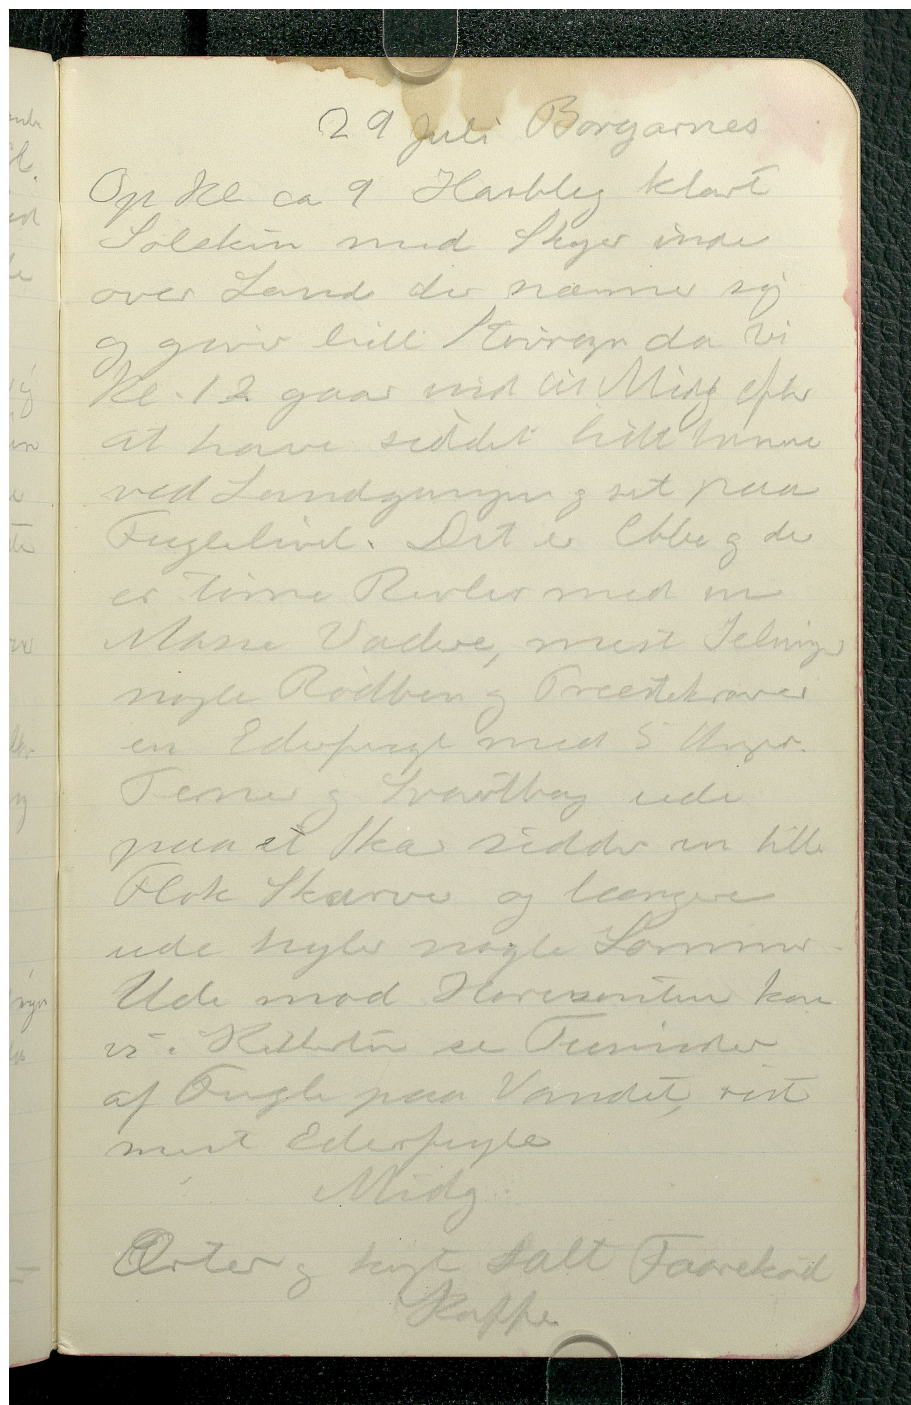 29 Juli Borgarnes
Op Kl ca 9 Havblig klart
Solskin med Skyer inde
over Land der nærmer sig
og giver lidt Støvregn da vi
Kl. 12 gaar ind til Midg efter
at have siddet lidt henne
ved Landgangen og set paa
Fuglelivet. Det er Ebbe og der
er tørre Revler med en
Masse Vadere, mest Selninger
nogle Rødben og Præstekraver
en Ederfugl med 5 Unger.
Terner og Svartbag ude
paa et Skær sidder en lille
Flok Skarver og længere
ude hyler nogle Lommer.
Ude mod Horisonten kan
vi i Kikkerten se Tusinder
af Fugle paa Vandet, vist
mest Ederfugle
Midg.
Ærter og kogt Salt Faarekød
Kaffe